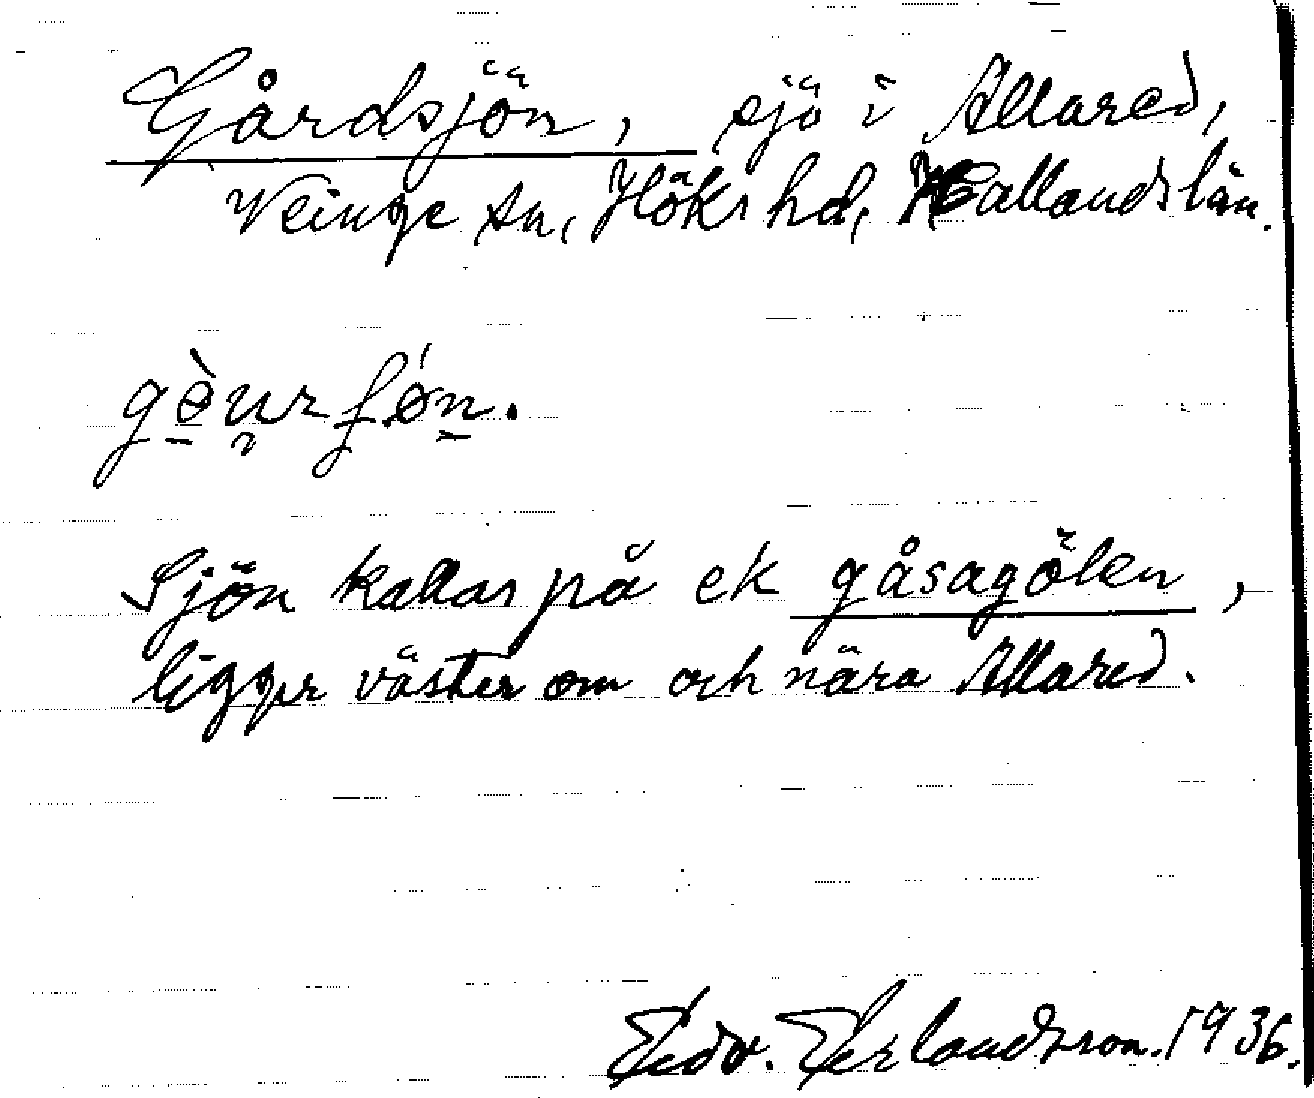 Gårdsjön, sjö i Allared,
Veinge sn, Höks hd, Hallands län.
gè̠u̯rʃó̤n̠.
Sjön kallas på ek gåsagölen,
ligger väster om och nära Allared.
Edv. Erlandsson. 1936.